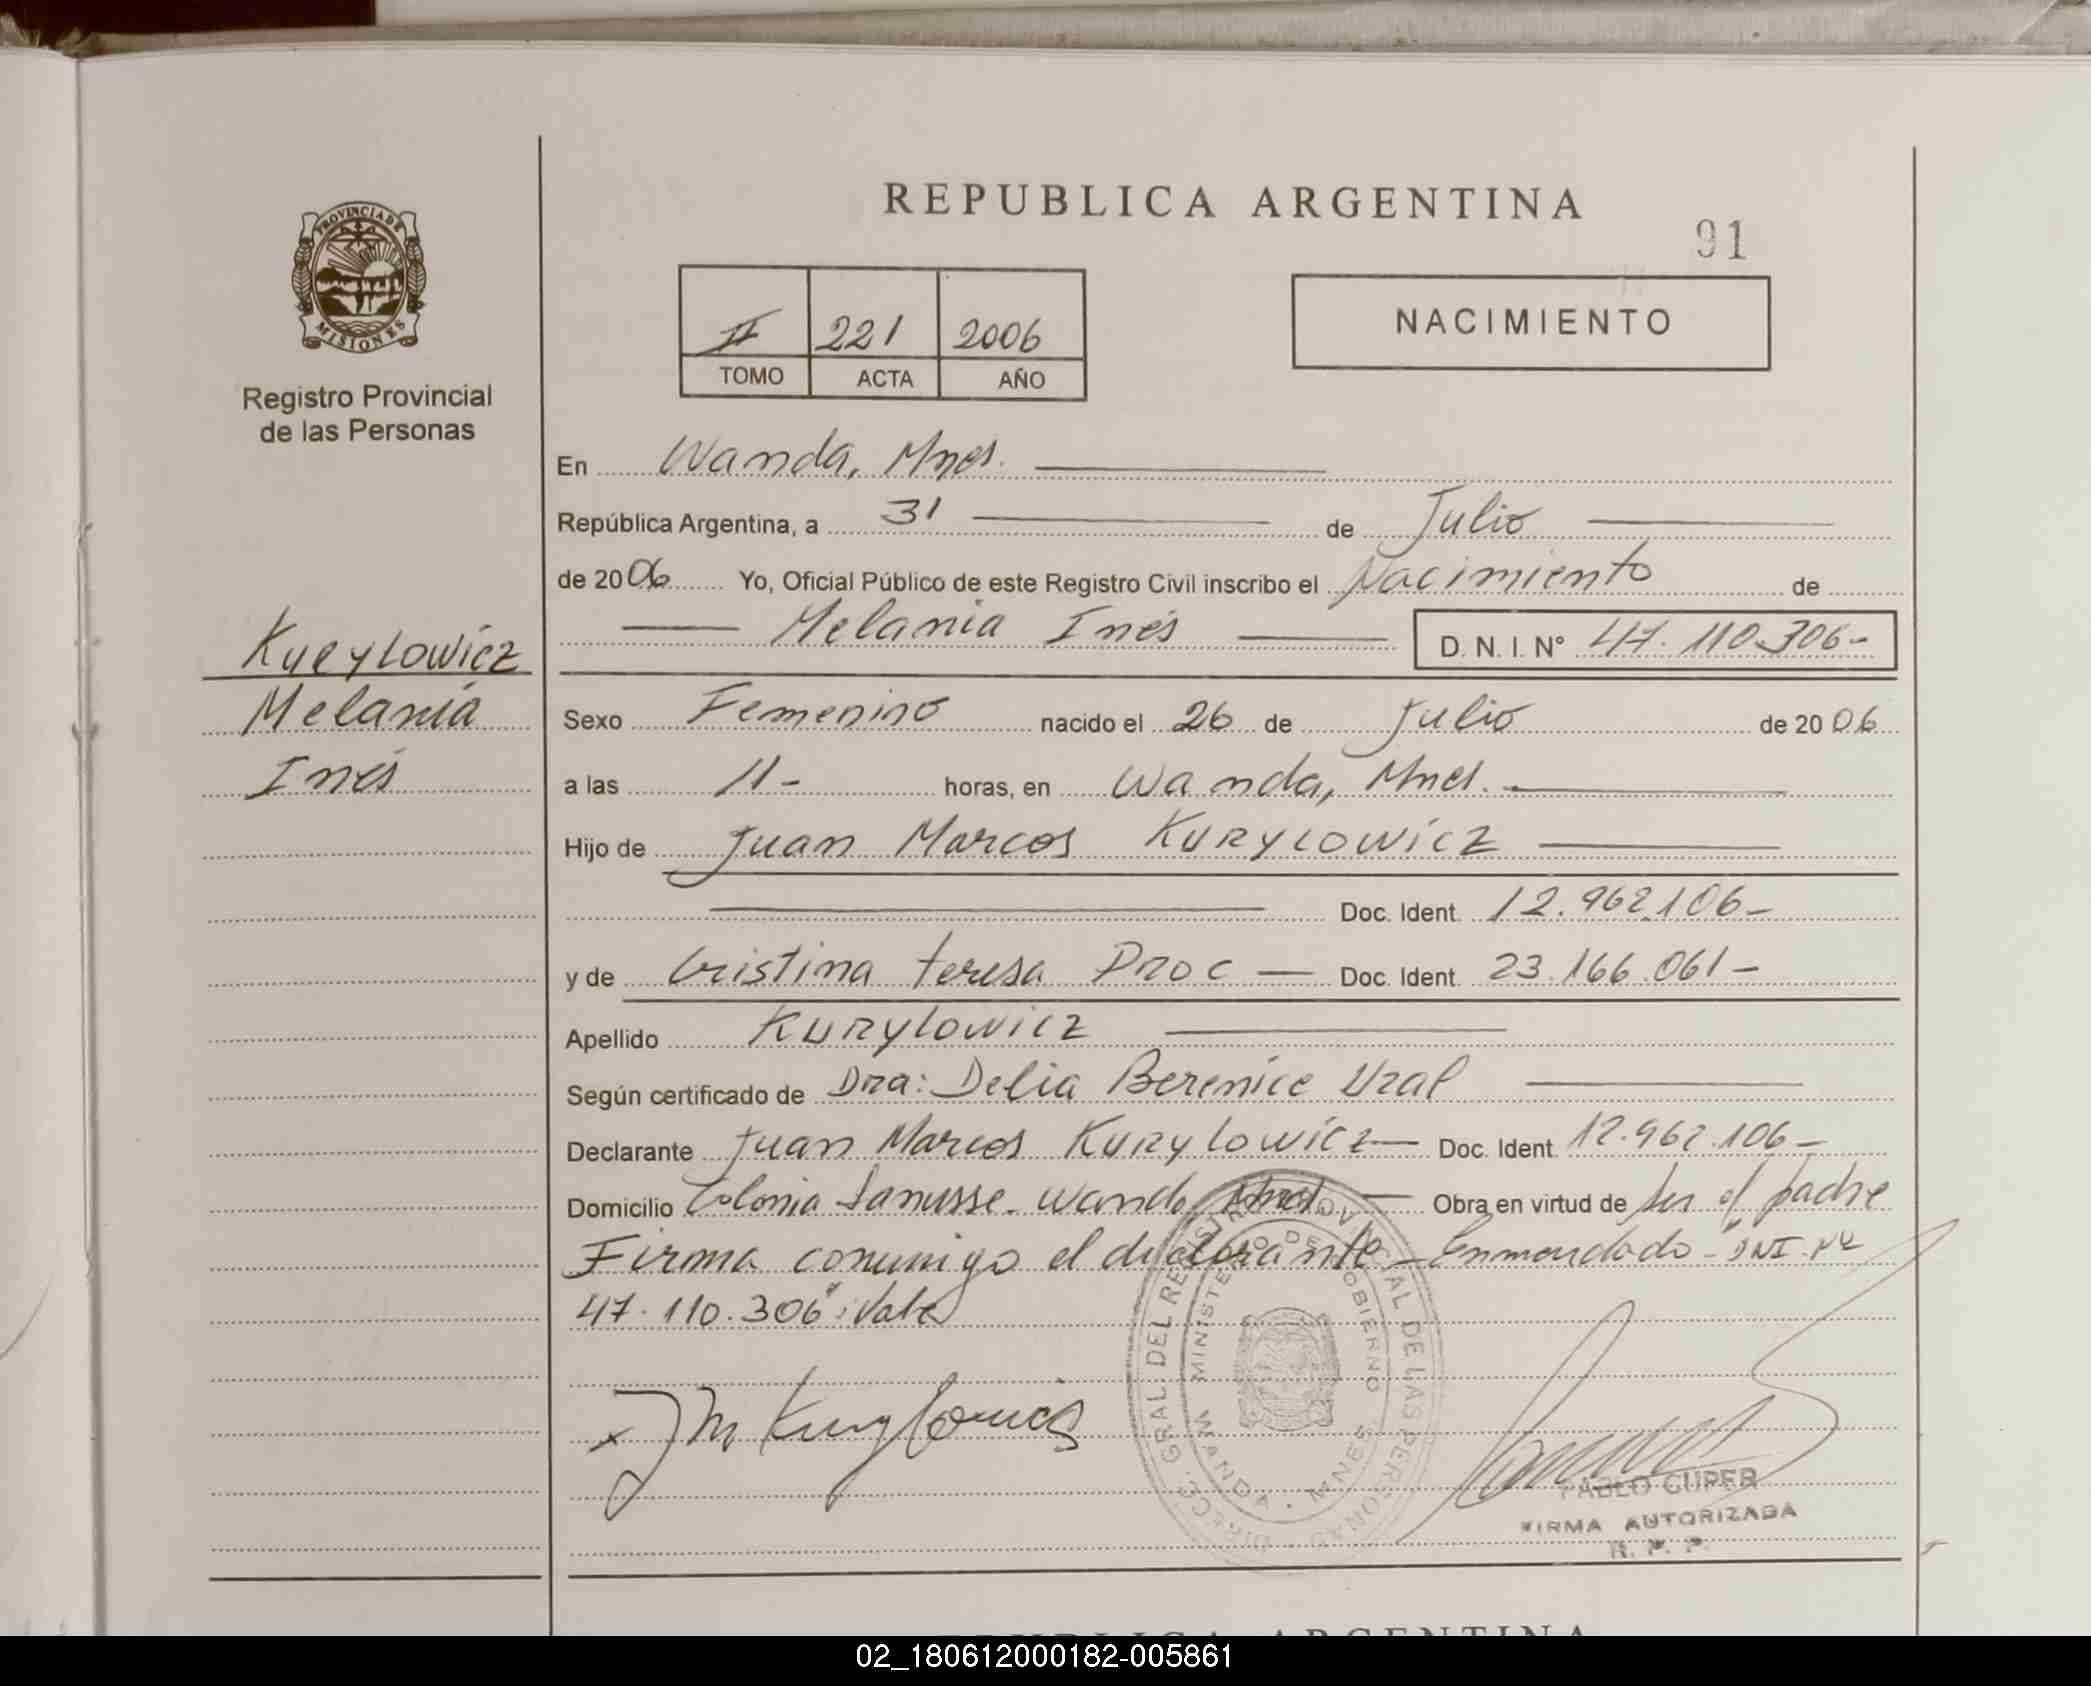 REPUBLICA ARGENTINA
91
PROVINCIA DE
MISIONES
Registro Provincial
de las Personas
II 221 2006
TOMO ACTA AÑO
NACIMIENTO
En Wanda, Mnes.
República Argentina, a 31 de Julio
de 2006 Yo, Oficial Público de este Registro Civil inscribo el Nacimiento de
Melania Inés D. N. I. Nº 47.110.306-
Kurylowicz
Melania
Inés
Sexo Femenino nacido el 26 de Julio de 2006
a las 11- horas, en Wanda, Mnes.
Hijo de Juan Marcos Kurylowicz
Doc. Ident. 12.962.106-
y de Cristina Teresa Proc Doc. Ident. 23.166.061-
Apellido Kurylowicz
Según certificado de Dra: Delia Berenice
Declarante Juan Marcos Kurylowicz Doc. Ident. 12.962.106-
Domicilio Colonia Lanusse - Wanda, Mnes. Obra en virtud de ser el padre
Firma conmigo el declarante - Enmendado - "DNI Nº
47.110.306": Vale
x JM Kurylowicz
DIRECC. GRAL. DEL REGISTRO PROVINCIAL DE LAS PERSONAS
MINISTERIO DE GOBIERNO
WANDA - MNES
PABLO CUPER
FIRMA AUTORIZADA
R. P. P.
REPUBLICA ARGENTINA
02_180612000182-005861